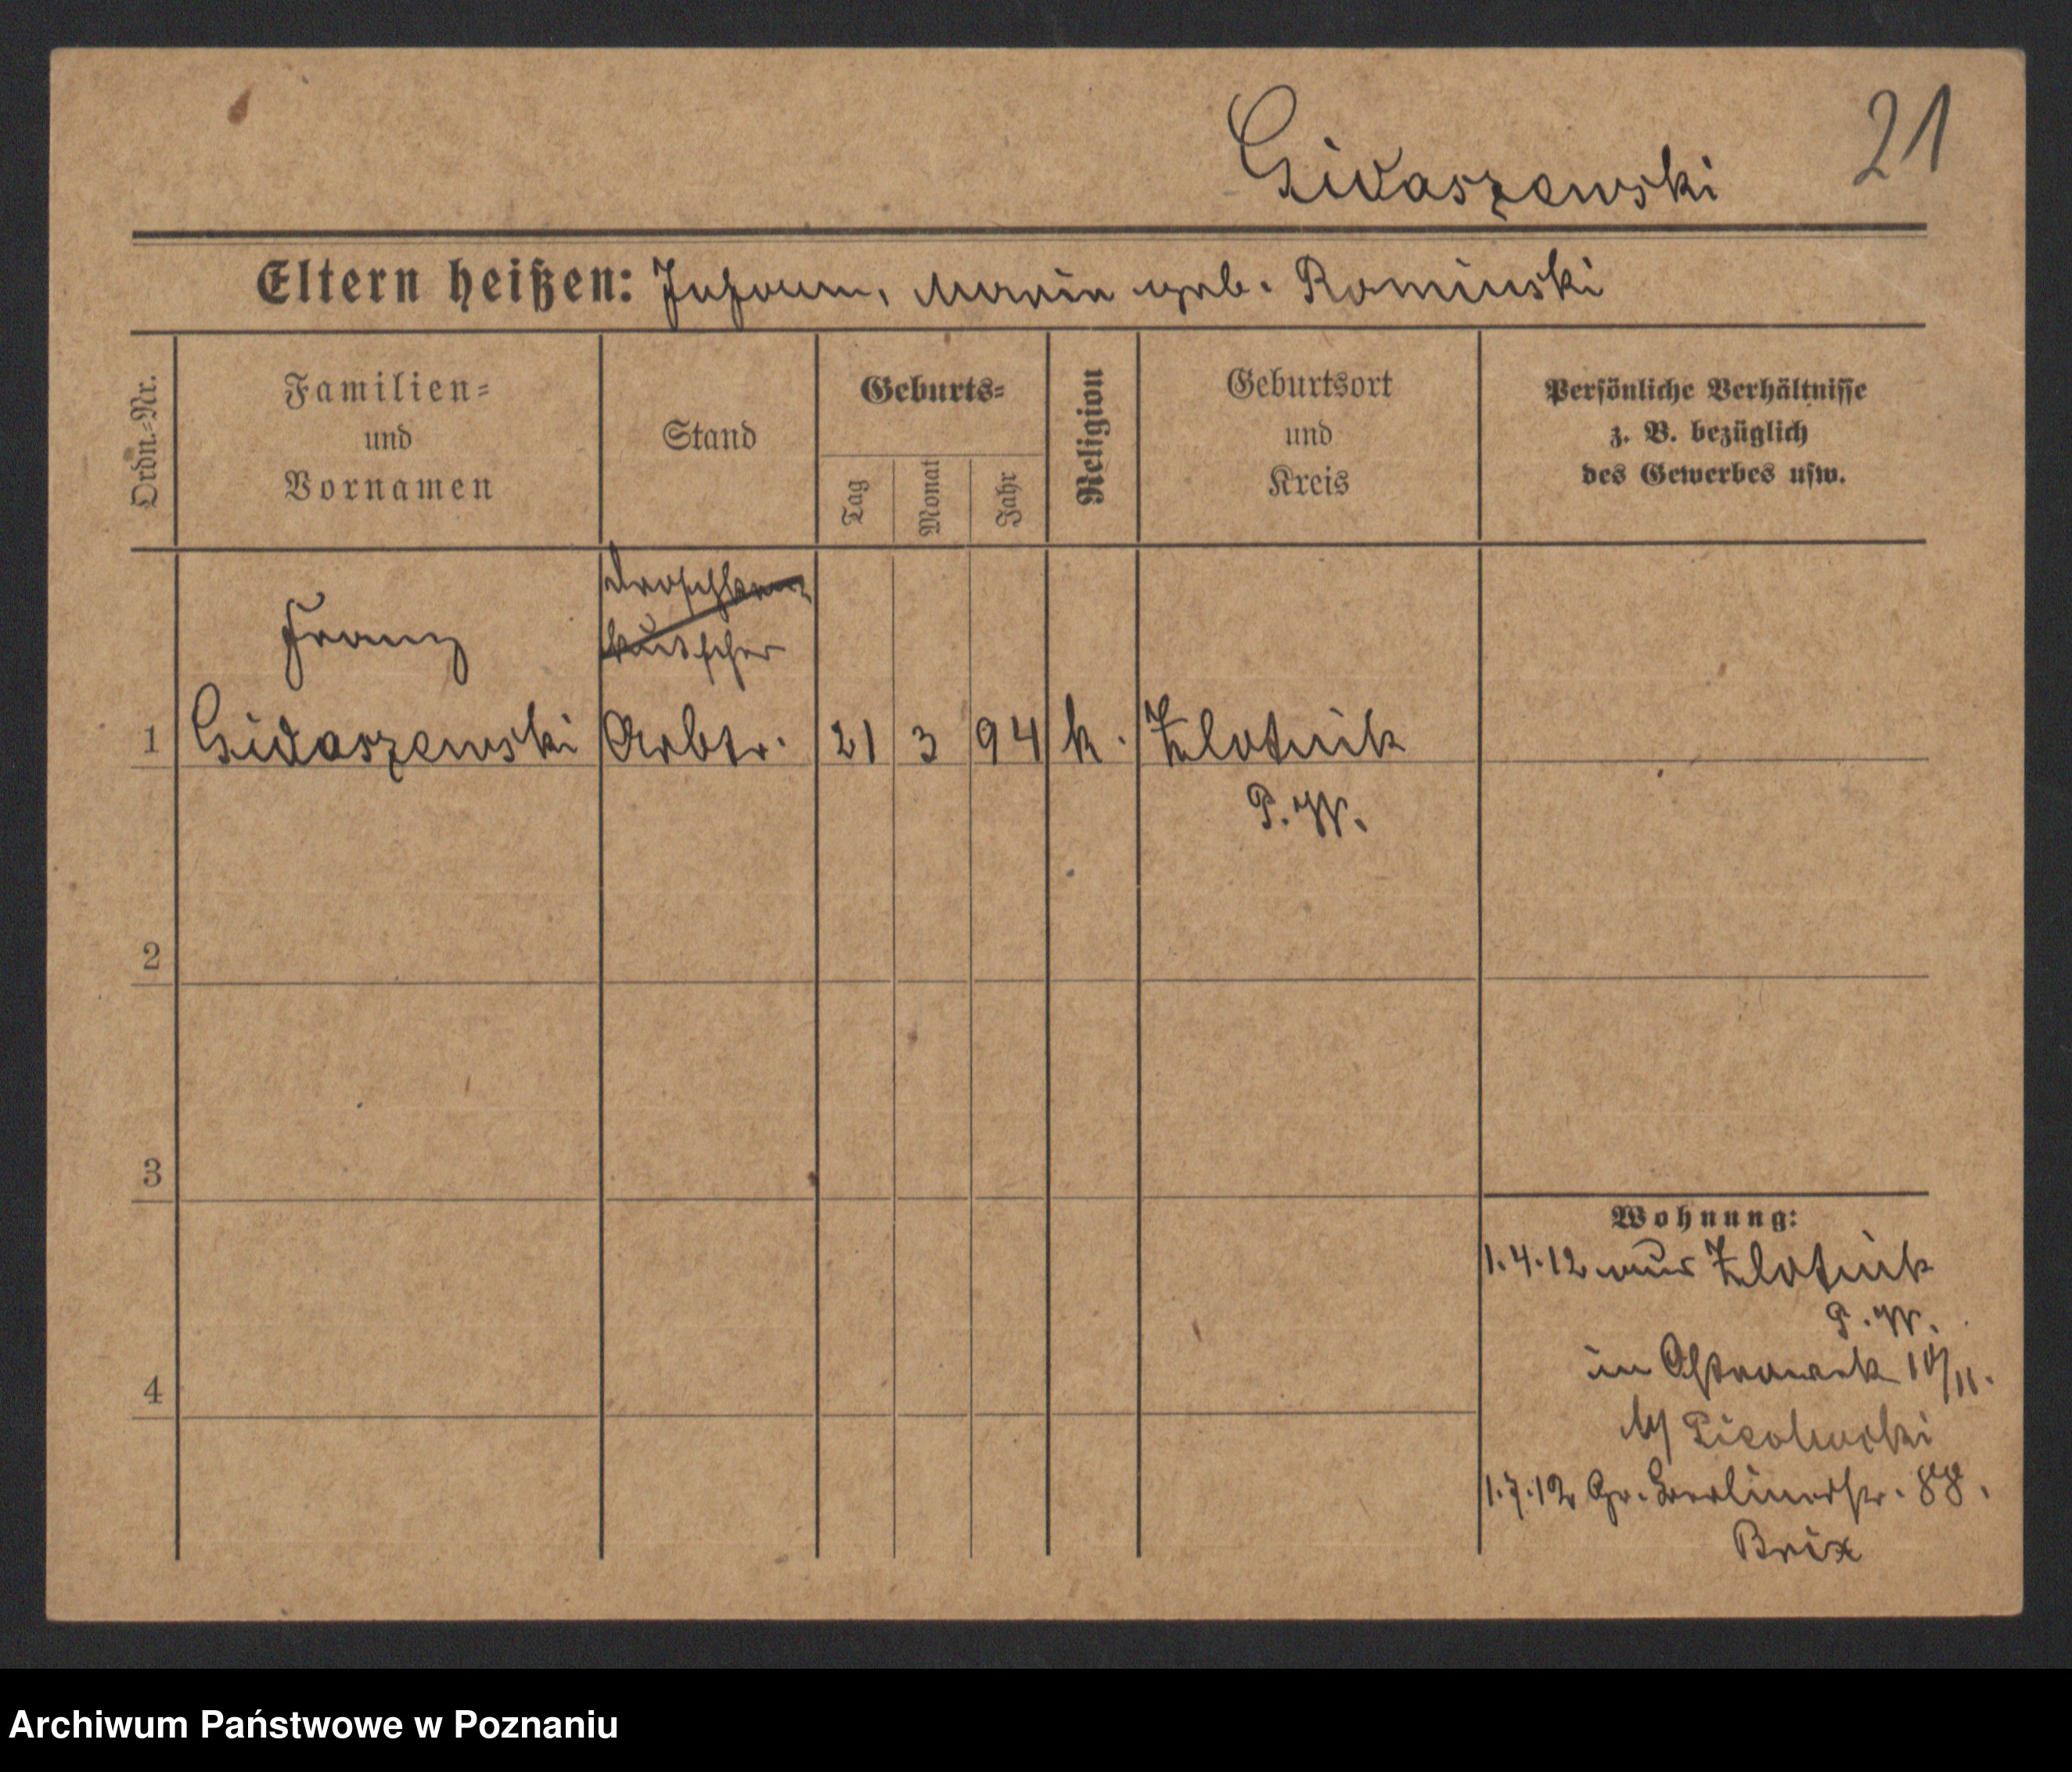 Gidaszewski 21
Eltern heißen: Johann, Maria geb. Rominski
Ordn.-Nr.
Familien-
und
Vornamen
Stand
Geburts-
Tag
Monat
Jahr
Religion
Geburtsort
und
Kreis
Persönliche Verhältnisse
z. B. bezüglich
des Gewerbes usw.
Droschken
kutscher
Franz
1 Gidaszewski Arbtr. 21 3 94 k. Zlotnik
P. W.
2
3
4
Wohnung:
1.4.12 aus Zlotnik
P. W.
in 10/11.
1.7.12 Gr. Berlinerstr. 88.
Brix
Archiwum Państwowe w Poznaniu